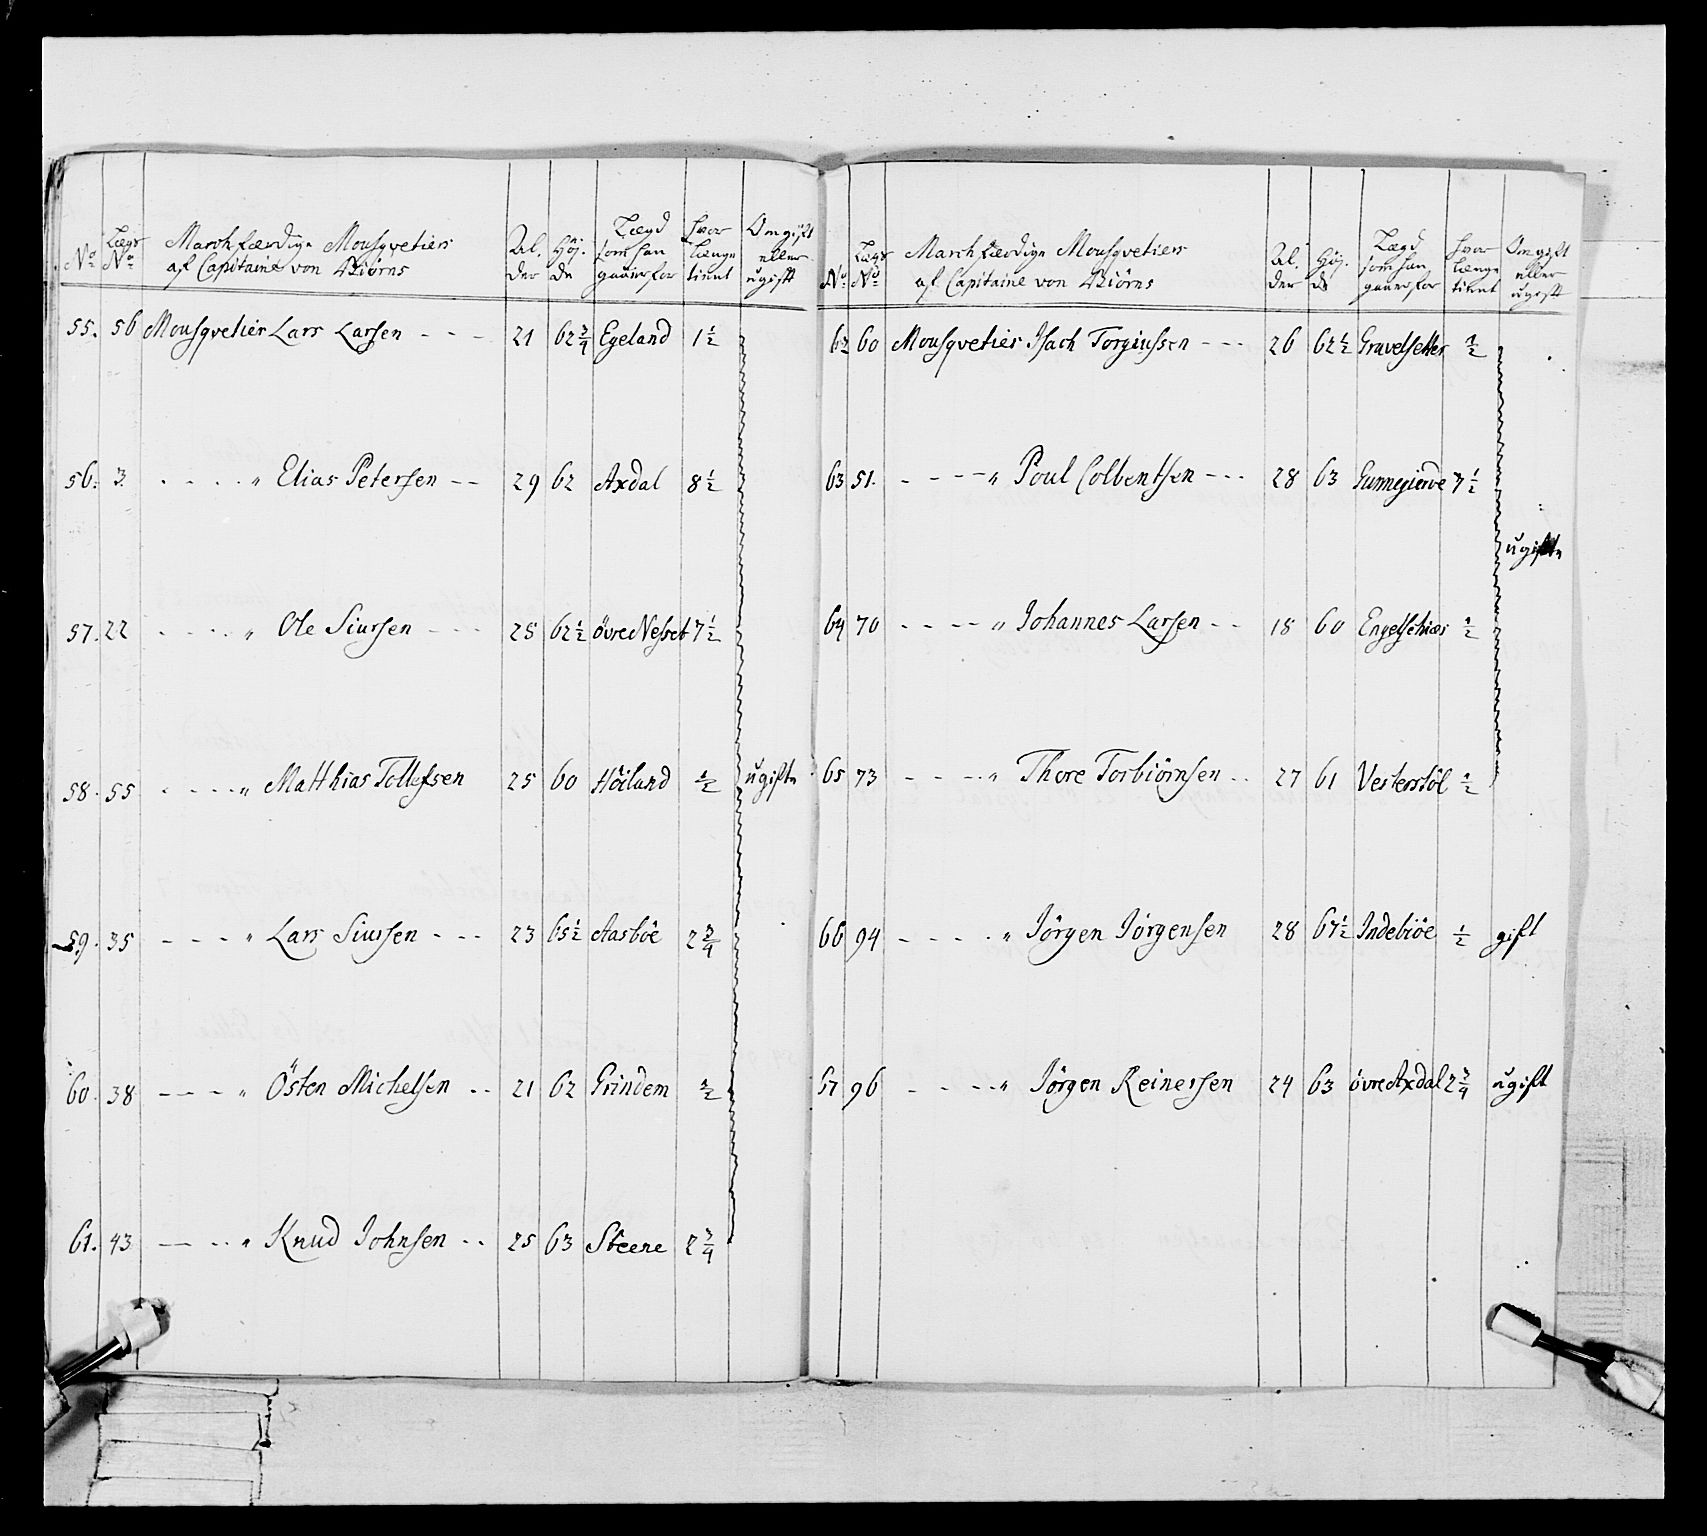 No
Lægs No
Marchfærdige Mousqvetiers
af Capitaine von Biörns
Al.
der
Höj.
de
Lægd
som han
gaaer for
hvor
længe
tient
Om gift
eller
ugift
55. 56 Mousqvetier Lars Larsen - - - 21 62 3/4 Egeland 1 1/2
56. 3. - - - - " Elias Petersen - - 29 62 Axdal 8 1/2
57. 22 - - - - " Ole Siursen - - - 25 62 1/2 övre Nesset 7 1/2
58. 55 - - - - " Matthias Tollefsen 25 60 Höiland 1/2 ugifte
59. 35 - - - - " Lars Siursen - - - 23 65 1/2 Aasböe 2 3/4
60. 38 - - - - " Östen Michelsen - - 21 62 Grindem 1/2
61. 43 - - - " Knud Johnsen - - 25 63 Steene 2 3/4
No
Lægs No
Marchfærdige Mousqvetiers
af Capitaine von Biörns
Al.
der
Höj.
de
Lægd
som han
gaaer for
hvor
længe
tient
Om gift
eller
ugift
62 60 Mousqvetier Isach Torgiussen - - - 26 62 1/2 Gravelsetter 1/2
63 51. - - - - " Poul Colbentsen - - - 28 63 Gunnegierde 7 1/2
ugifte
64 70 - - - - " Johannes Larsen - - 18 60 Engelschiær 1/2
65 73 - - - - " Thore Torbiörnsen - - 27 61 Vesterstöl 1/2
66 94 - - - - " Jörgen Jörgensen 28 67 1/2 Indebröe 1/2 gift
67 96 - - - - " Jörgen Reinersen 24 63 övre Axdal 2 3/4 ugift